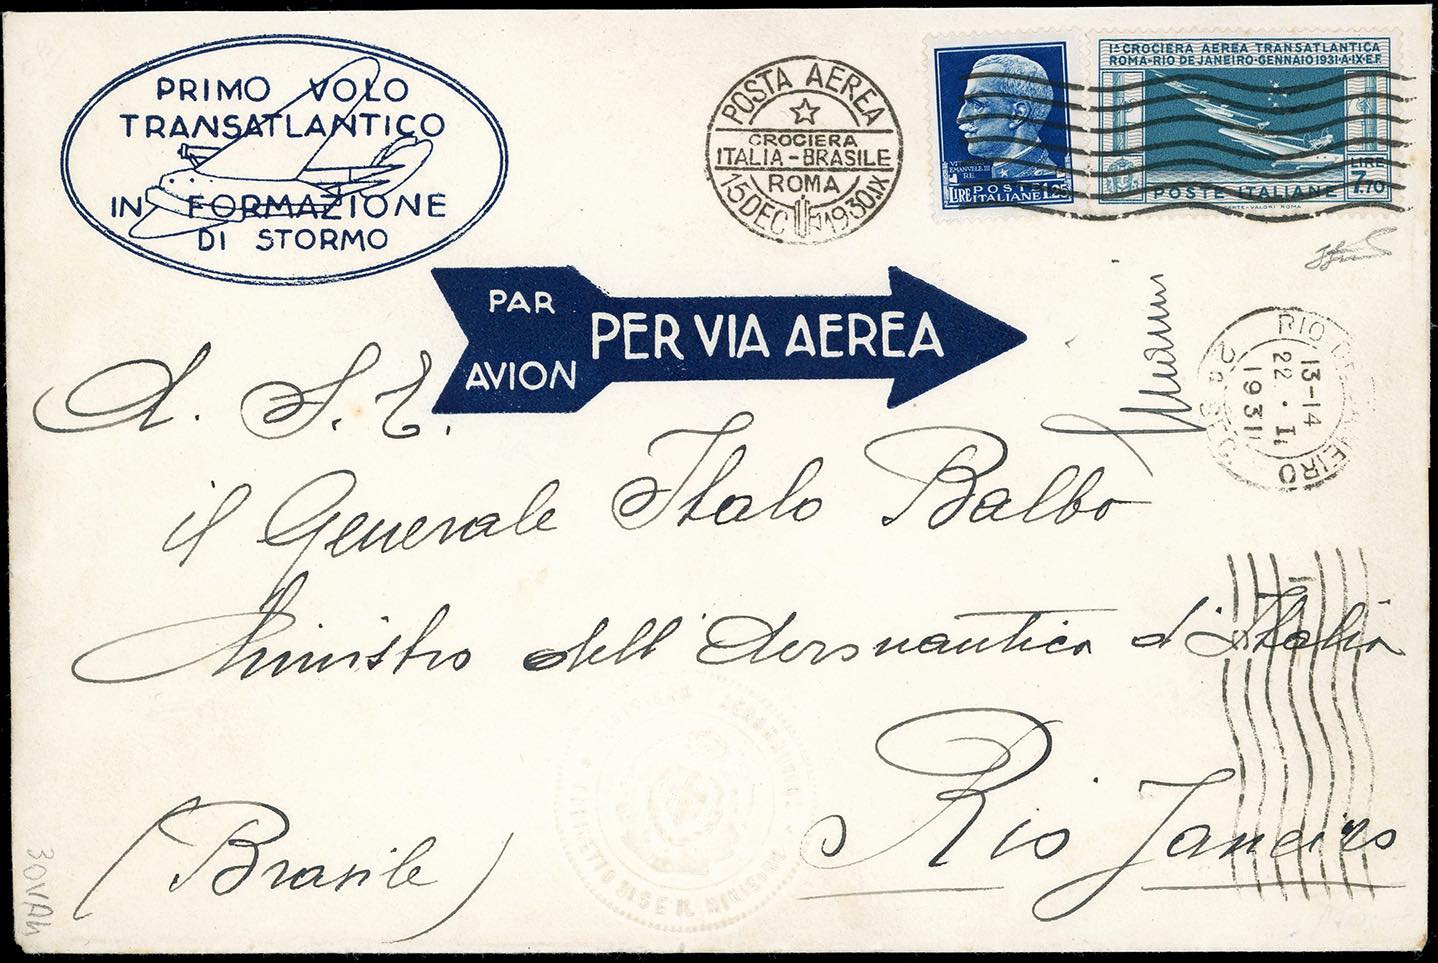 PRIMO VOLO
TRANSATLANTICO
IN FORMAZIONE
DI STORMO
POSTA AEREA
CROCIERA
ITALIA-BRASILE
ROMA
15 DEC 1930.IX
VITTORIO
EMANUELE III
RE
LIRE POSTE 1.25
ITALIANE
Iª CROCIERA AEREA TRANSATLANTICA
ROMA-RIO DE JANEIRO-GENNAIO 1931-A.IX.E.F.
LIRE
7.70
POSTE ITALIANE
PAR
AVION
PER VIA AEREA
RIO DE JANEIRO
13-14
22.II
1931
A. S. E.
il Generale Italo Balbo
Ministro dell'Aeronautica d'Italia
Rio Janeiro
(Brasile)